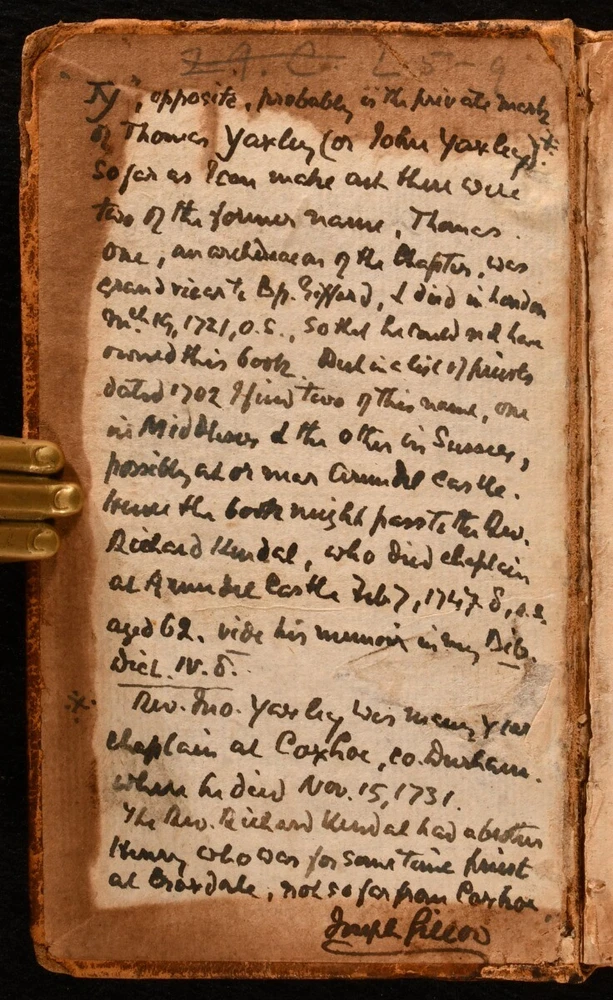 Z. A. C. L. 5-9
"Ty", opposite, probably is the private mark
of Thomas Yaxley (or John Yaxley)*.
So far as I can make out there were
two of the former name, Thomas.
One, an archdeacon of the Chapter, was
grand vicar to Bp. Giffard, & died in London
19, 1721, O.S., so that he could not have
owned this book. But in a list of priests
dated 1702 I find two of this name, one
in Middlesex & the other in Sussex,
possibly at or near Arundel Castle.
Hence the book might pass to the Rev.
Richard Kendal, who died chaplain
at Arundel Castle Feb 7, 1747-8, o.s.
aged 62. vide his memoir in my Bib.
Dict. IV. 8.
* Rev. Jno. Yaxley was many year
chaplain at Coxhoe, co. Durham.
where he died Nov. 15, 1731.
The Rev. Richard Kendal had a brother
Henry who was for some time priest
at Croxdale, not so far from Coxhoe.
Joseph Gillow